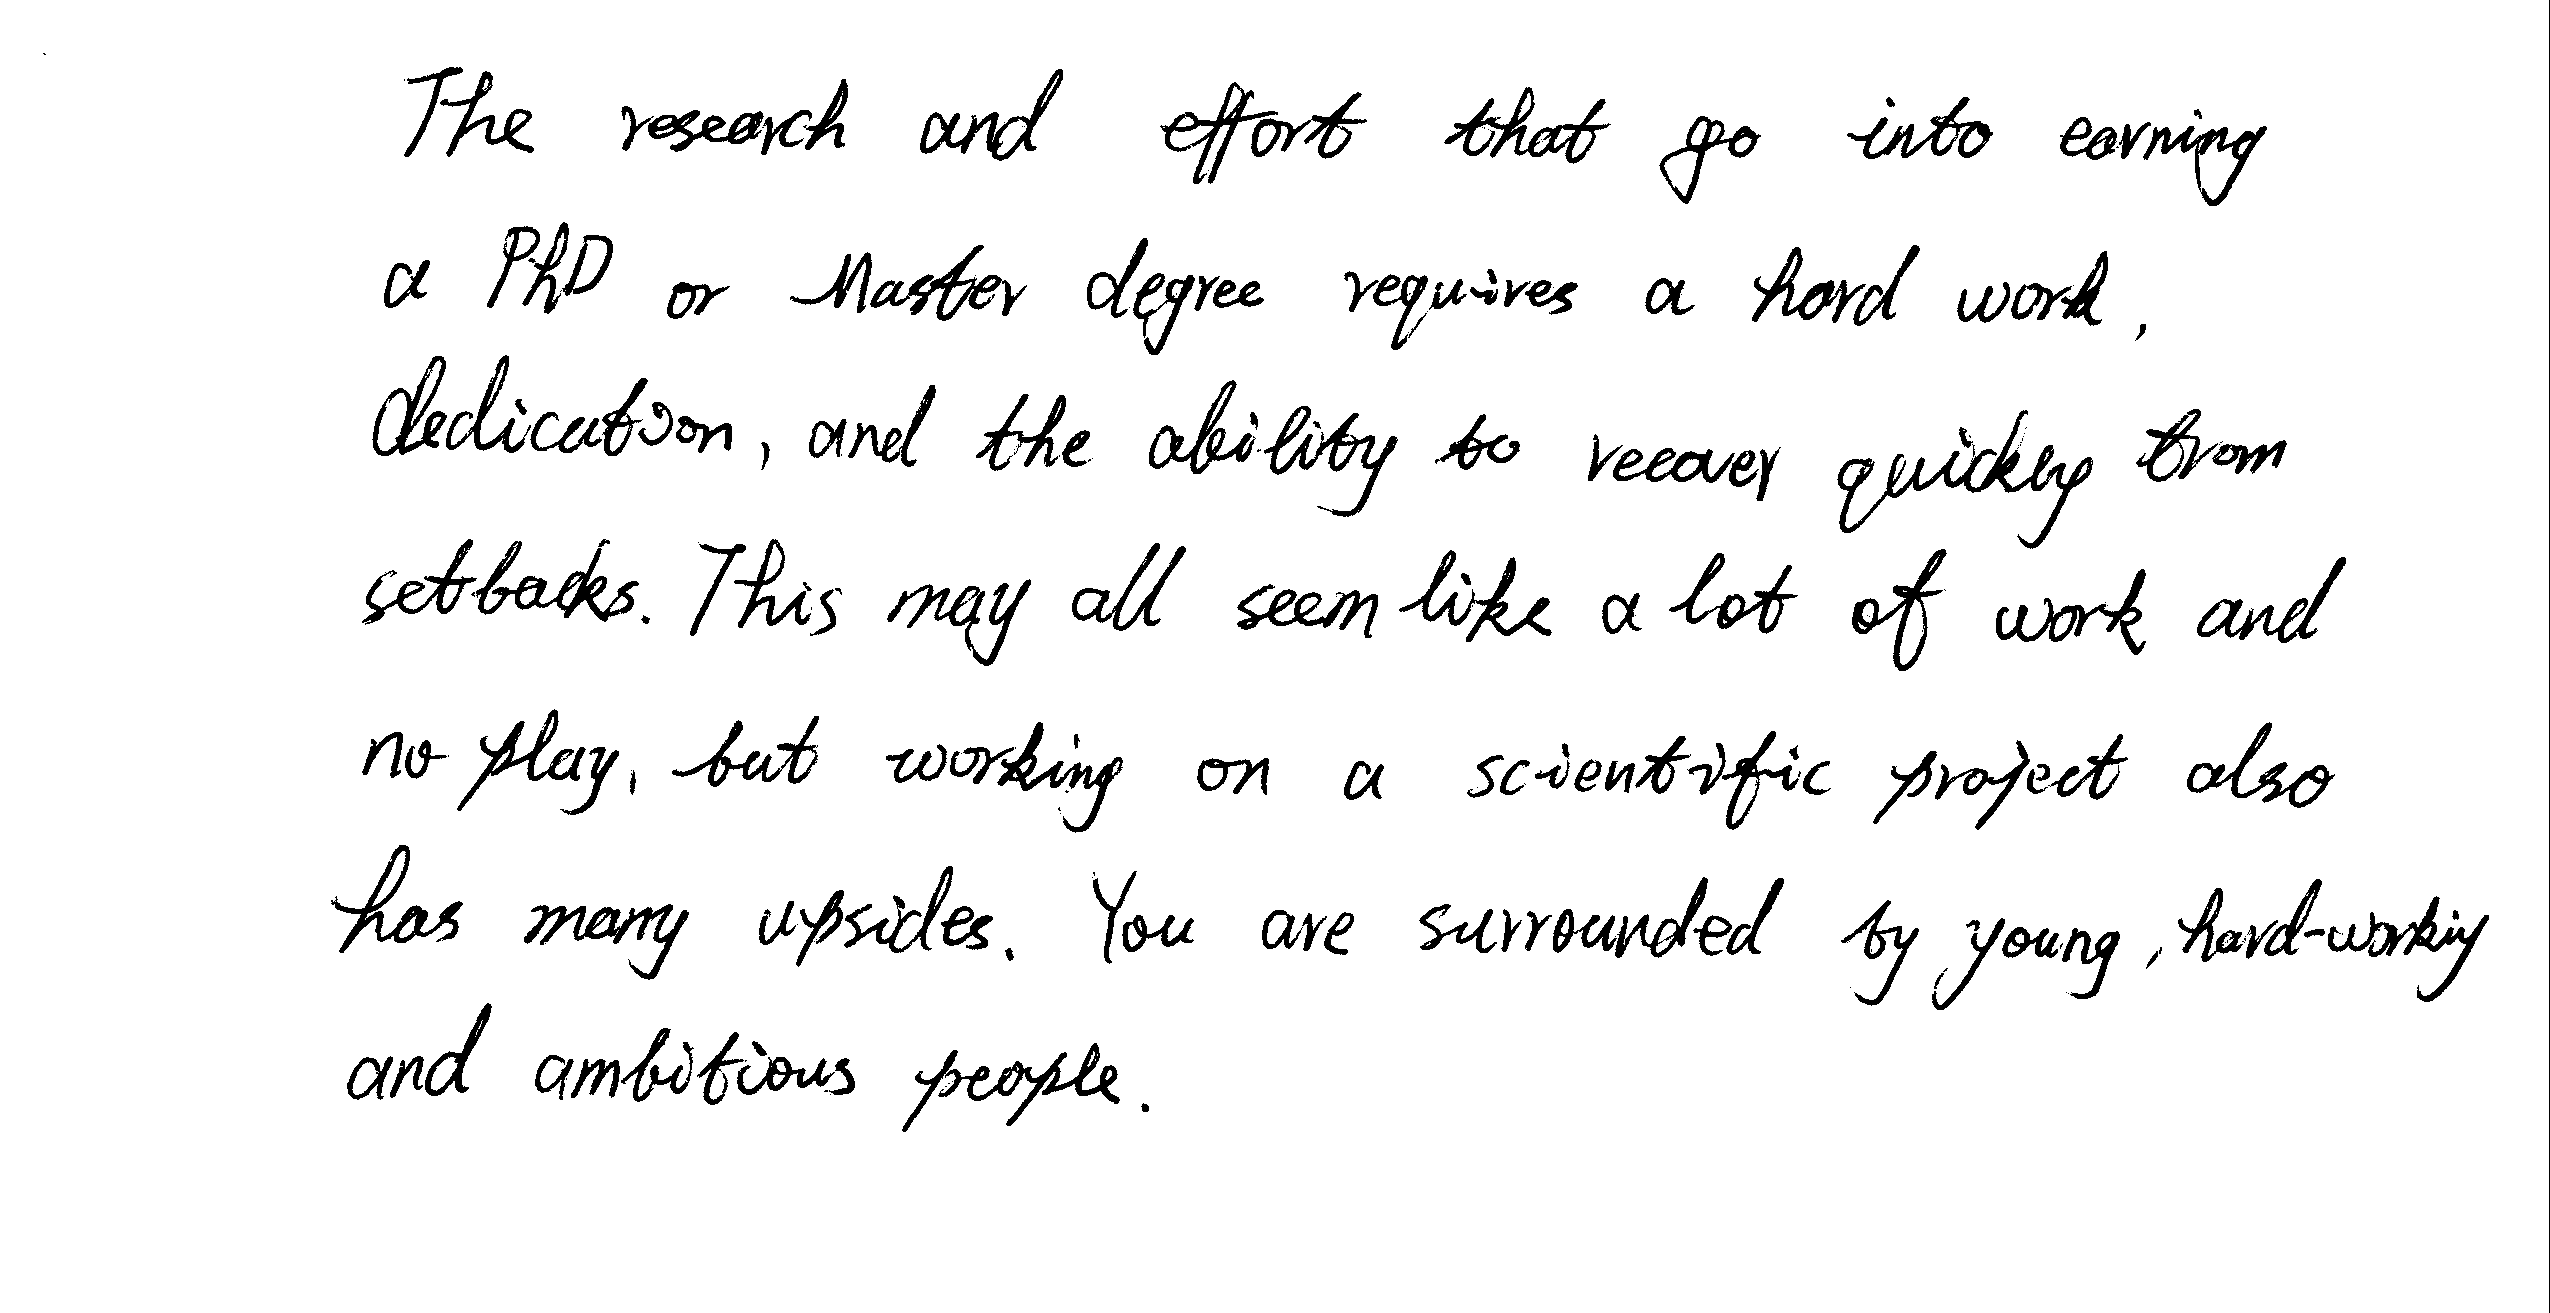 The research and effort that go into earning
a PhD or Master degree requires a hard work,
dedication, and the ability to recover quickly from
setbacks. This may all seem like a lot of work and
no play, but working on a scientific project also
has many upsides. You are surrounded by young, hard-working
and ambitious people.